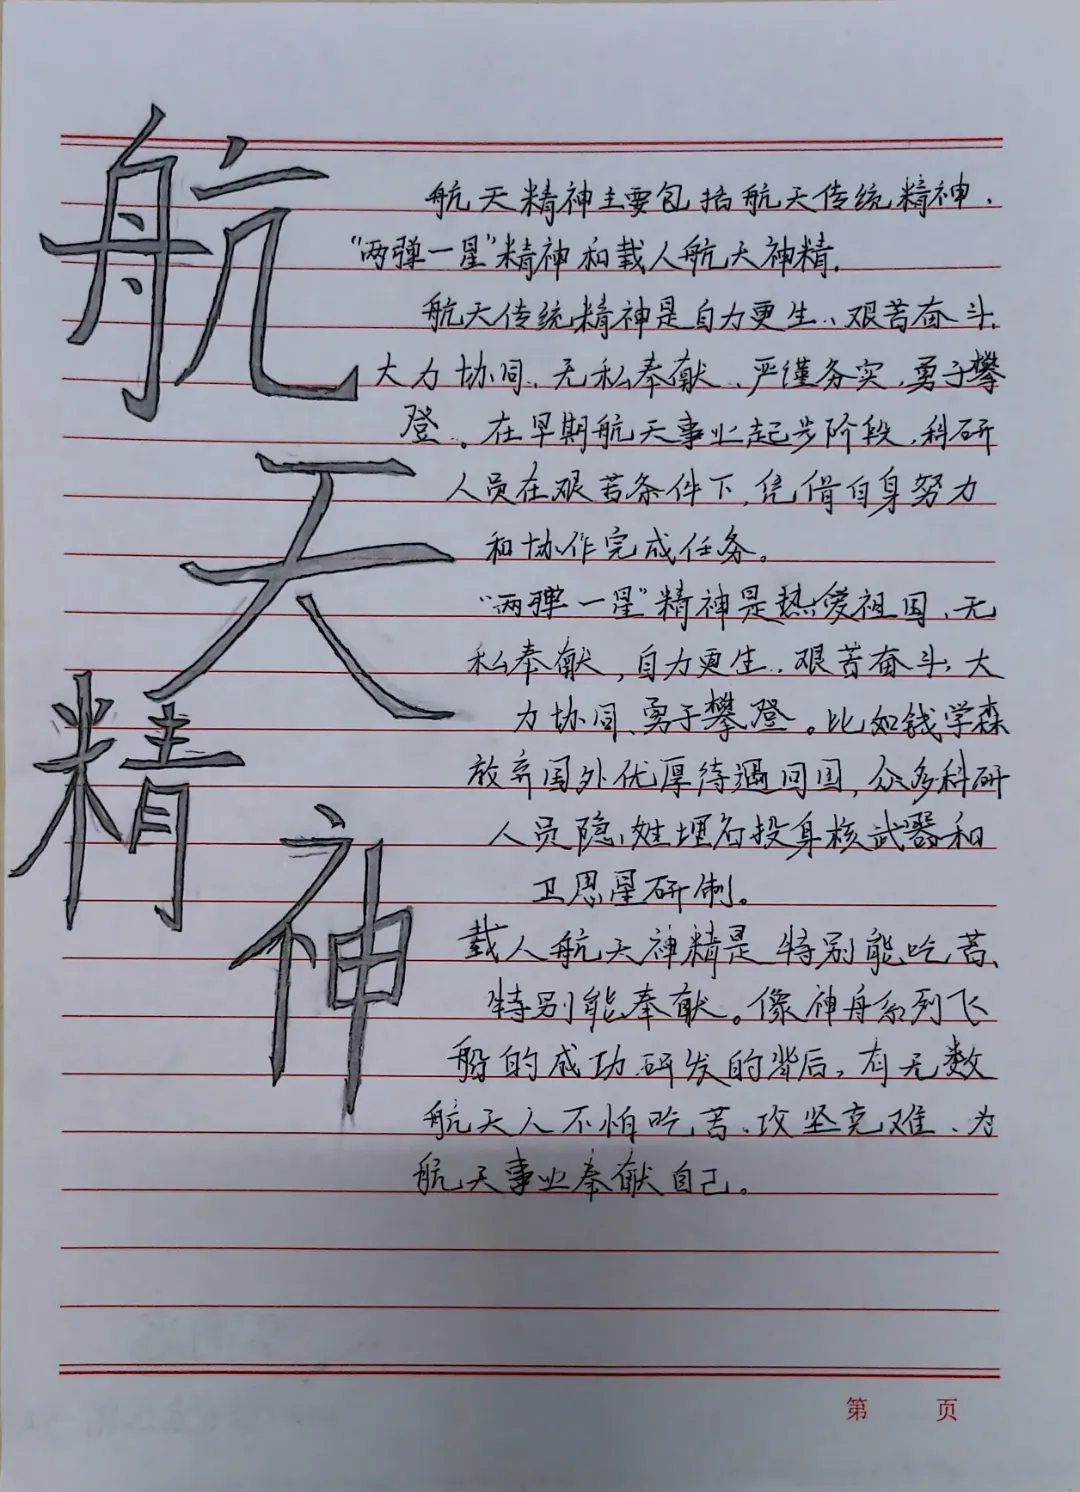 航天精神
航天精神主要包括航天传统精神、
“两弹一星”精神和载人航天神精.
航天传统精神是自力更生、艰苦奋斗、
大力协同、无私奉献、严谨务实,勇于攀
登。在早期航天事业起步阶段,科研
人员在艰苦条件下,凭借自身努力
和协作完成任务。
“两弹一星”精神是热爱祖国、无
私奉献,自力更生、艰苦奋斗、大
力协同、勇于攀登。比如钱学森
放弃国外优厚待遇回国,众多科研
人员隐姓埋名投身核武器和
卫思星研制。
载人航天神精是特别能吃苦、
特别能奉献。像神舟系列飞
船的成功研发的背后,有无数
航天人不怕吃苦、攻坚克难、为
航天事业奉献自己。
第 页